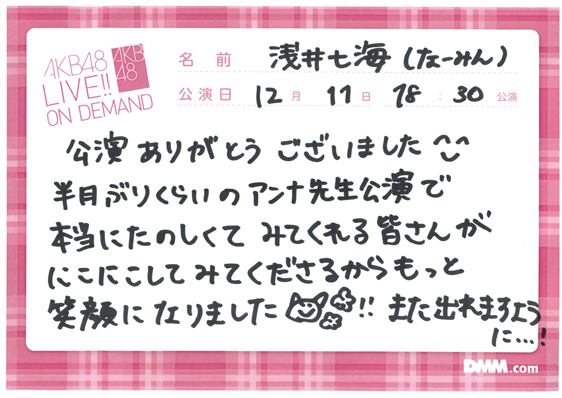 AKB48
LIVE!!
ON DEMAND
AKB
48
名前 浅井七海(なーみん)
公演日 12月11日 18:30公演
公演ありがとうございました
半月ぶりくらいのアンナ先生公演で
本当にたのしくて みてくれる皆さんが
にこにこしてみてくださるからもっと
笑顔になりました!! また出れますよう
に...!
DMM.com